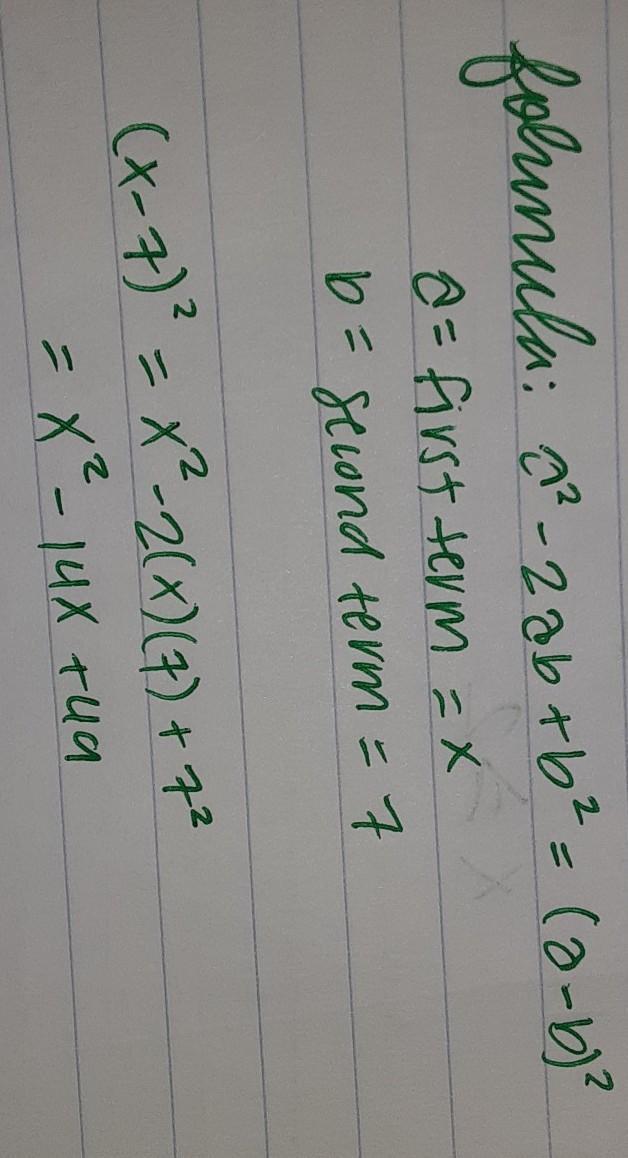 formula: a² - 2ab + b² = (a - b)²
a = first term = x
b = second term = 7
(x - 7)² = x² - 2(x)(7) + 7²
= x² - 14x + 49